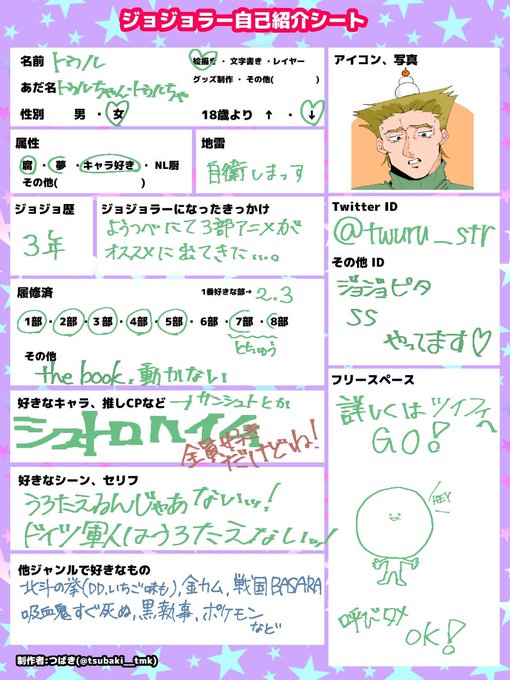 ジョジョラー自己紹介シート
名前 トゥル
絵描き・文字書き・レイヤー
グッズ制作・その他( )
あだ名 トゥルちゃん・トゥルちゃ
性別 男・女 18歳より ↑・↓
属性
腐・夢・キャラ好き・NL厨
その他( )
地雷
自衛しまっす
ジョジョ歴
3年
ジョジョラーになったきっかけ
ようつべにて3部アニメが
オススメに出てきた…。
履修済 1番好きな部→ 2.3
1部・2部・3部・4部・5部・6部・7部・8部
とちゅう
その他
the book, 動かない
好きなキャラ、推しCPなど →サンシュトとか
シュトロハイム
全員好き
だけどね!
好きなシーン、セリフ
うろたえるんじゃあないッ!
ドイツ軍人はうろたえないッ
他ジャンルで好きなもの
北斗の拳(DD,いちご味も),金カム,戦国BASARA
吸血鬼すぐ死ぬ,黒執事,ポケモン
など
制作者:つばき(@tsubaki__tmk)
アイコン、写真
Twitter ID
@twuru_str
その他 ID
ジョジョピタ
SS
やってます♡
フリースペース
詳しくはツイフィへ
GO!
HEY
呼びタメ
OK!